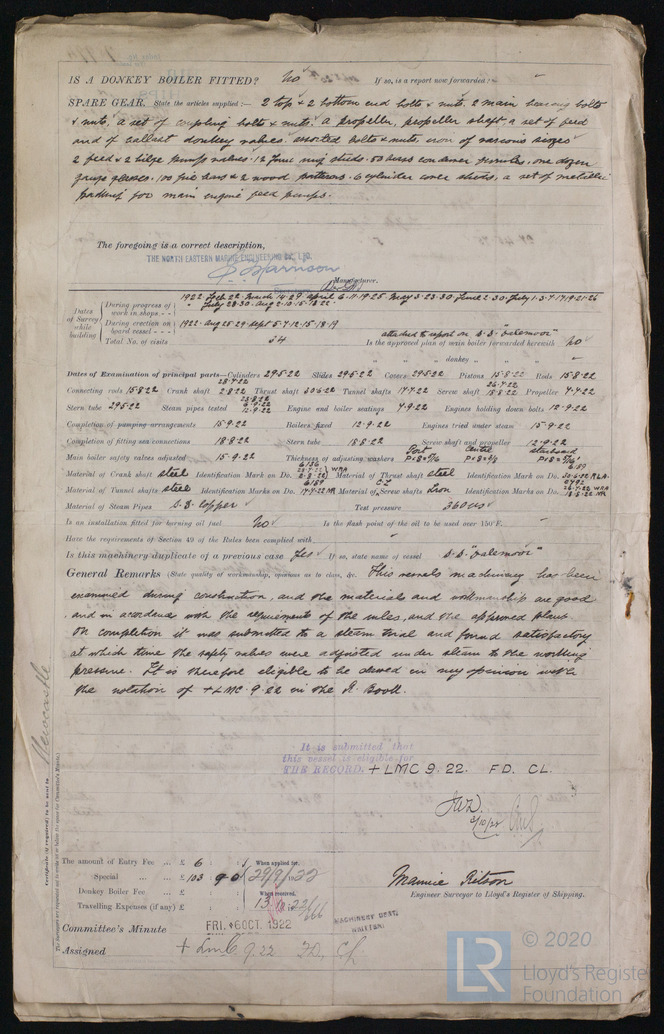 IS A DONKEY BOILER FITTED? No If so, is a report now forwarded? -
SPARE GEAR. State the articles supplied:— 2 top & 2 bottom end bolts & nuts, 2 main bearing bolts
& nuts, a set of coupling bolts & nuts, a propeller, propeller shaft, a set of feed
and of ballast donkey valves, assorted bolts & nuts, iron of various sizes
2 feed & 2 bilge pump valves, 12 junk ring studs, 50 condenser ferrules, one dozen
gauge glasses, 100 fire bars & 2 wood patterns, 6 cylinder cover studs, a set of metallic
packing for main engine feed pumps.
The foregoing is a correct description,
THE NORTH EASTERN MARINE ENGINEERING CO. LTD.
Harrison
Manufacturer.
Dates of Survey while building
During progress of work in shops - - 1922 Feb 22 March 14.29 April 6.11.19.25 May 3.23.30 June 2.30 July 1.3.7.17.19.21.26
July 28.30 Aug 2.10.15.18.22
During erection on board vessel - - - 1922. Aug 25.29 Sept 5.7.12.15.18.19
Total No. of visits 34
attached to report on S.S. "Valemoor"
Is the approved plan of main boiler forwarded herewith No
" " " donkey " " " -
Dates of Examination of principal parts—Cylinders 29.5.22 Slides 29.5.22 Covers 29.5.22 Pistons 15.8.22 Rods 15.8.22
Connecting rods 15.8.22 Crank shaft 28.7.22 2.8.22 Thrust shaft 30.6.22 Tunnel shafts 17.7.22 Screw shaft 26.7.22 18.8.22 Propeller 7.7.22
Stern tube 29.5.22 Steam pipes tested 12.9.22 Engine and boiler seatings 7.9.22 Engines holding down bolts 12.9.22
Completion of pumping arrangements 15.9.22 Boilers fixed 12.9.22 Engines tried under steam 15.9.22
Completion of fitting sea connections 18.8.22 Stern tube 18.8.22 Screw shaft and propeller 12.9.22
Main boiler safety valves adjusted 15.9.22 Thickness of adjusting washers Port Centre Starboard
Material of Crank shaft steel Identification Mark on Do. 2.8.22 Material of Thrust shaft steel Identification Mark on Do. 30.6.22 RLA
Material of Tunnel shafts steel Identification Marks on Do. 17.7.22 NR Material of Screw shafts Iron Identification Marks on Do. 26.7.22 WRA 18.8.22 NR
Material of Steam Pipes S.D. copper Test pressure 360 lbs
Is an installation fitted for burning oil fuel No Is the flash point of the oil to be used over 150°F. -
Have the requirements of Section 49 of the Rules been complied with -
Is this machinery duplicate of a previous case Yes If so, state name of vessel S.S. "Valemoor"
General Remarks (State quality of workmanship, opinions as to class, &c. This vessels machinery has been
examined during construction, and the materials and workmanship are good
and in accordance with the requirements of the rules, and the approved plans.
On completion it was submitted to a steam trial and found satisfactory
at which time the safety valves were adjusted under steam to the working
pressure. It is therefore eligible to be classed in my opinion with
the notation of +LMC.9.22 in the R. Book.
It is submitted that
this vessel is eligible for
THE RECORD. + LMC 9.22. FD. CL.
Newcastle
Certificate (if required) to be sent to
The amount of Entry Fee ... £ 6 : : When applied for,
Special ... £ 103 : 9 : 0 29/9/1922
Donkey Boiler Fee ... £ : : When received,
Travelling Expenses (if any) £ : : 13.10.22
Maurice Ritson
Engineer Surveyor to Lloyd's Register of Shipping.
Committee's Minute FRI. 6 OCT. 1922
MACHINERY CERTE WRITTEN
Assigned + LMC 9.22 FD, CL
LR © 2020
Lloyd's Register
Foundation